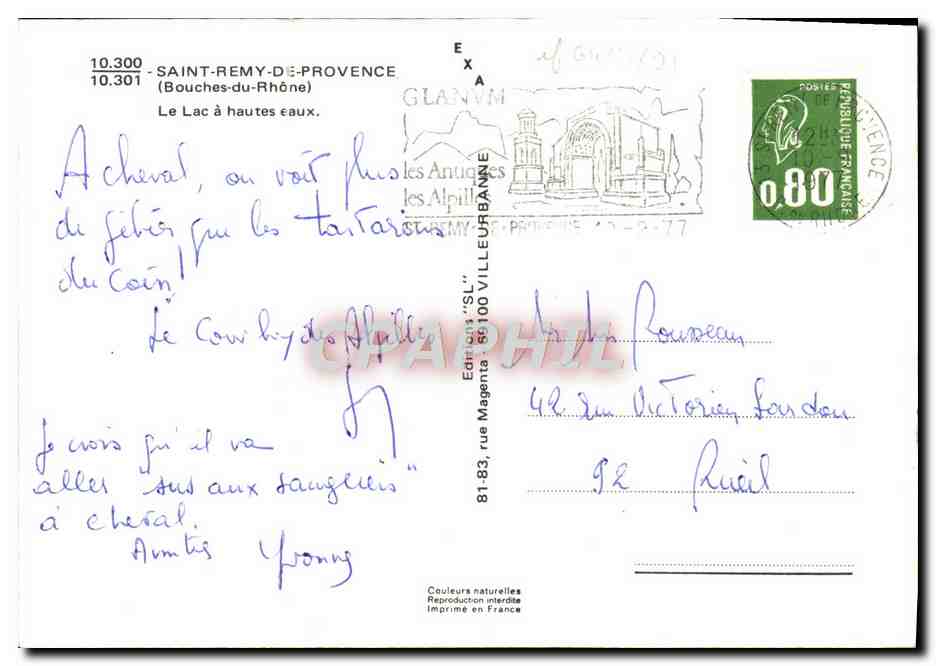 10.300
10.301 - SAINT-REMY-DE-PROVENCE
(Bouches-du-Rhône)
Le Lac à hautes eaux.
EXA
GLANVM
les Antiques
les Alpilles
ST-REMY-DE-PROVENCE 10-9-77
POSTES
REPUBLIQUE FRANÇAISE
0,80
A cheval, on voit plus
de gibier que les tartarins
du coin!
Le Cow boy des Alpilles
Je crois qu'il va
aller "sus aux sangliers"
à cheval.
Amitiés Yvonne
Editions "SL"
81-83, rue Magenta - 69100 VILLEURBANNE
CPAPHIL
Rousseau
42 rue Victorien Sardou
92 Rueil
Couleurs naturelles
Reproduction interdite
Imprimé en France